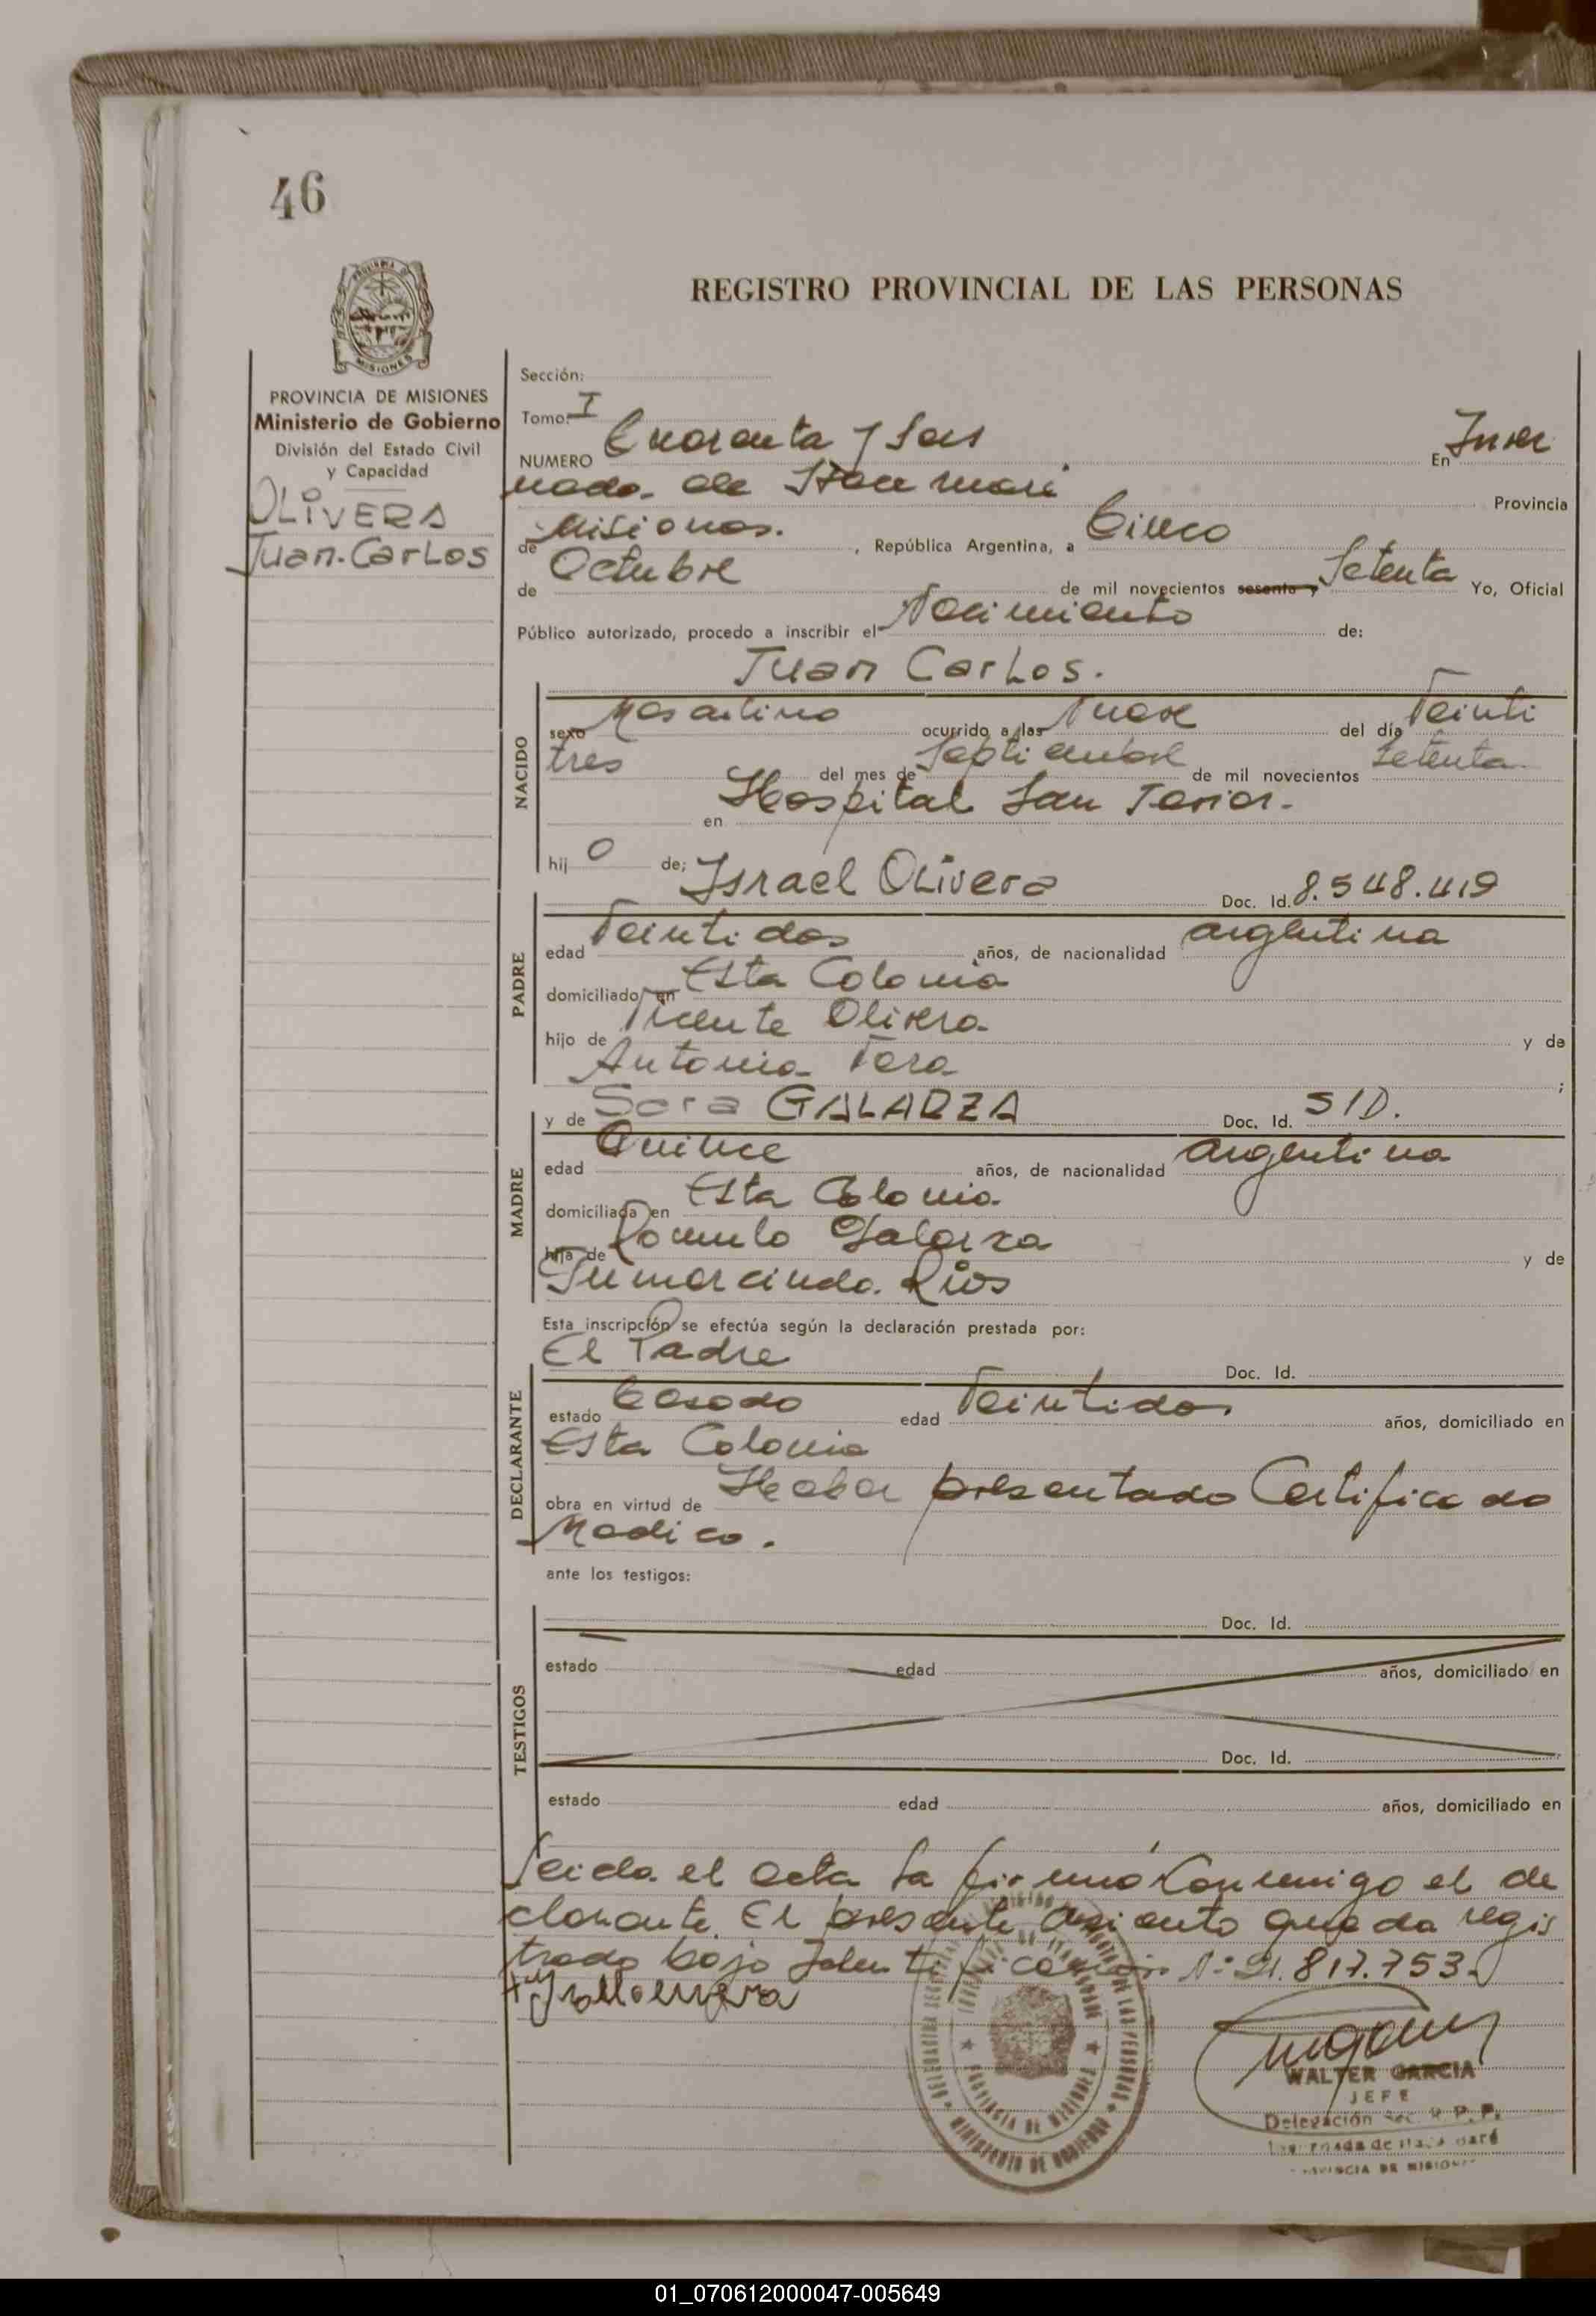 46
REGISTRO PROVINCIAL DE LAS PERSONAS
MISIONES
PROVINCIA DE MISIONES
Ministerio de Gobierno
División del Estado Civil
y Capacidad
OLIVERA
Juan-Carlos
Sección:
Tomo: I
NUMERO Cuarenta y Seis En Inver
nada de Itacuarí Provincia
de Misiones. , República Argentina, a Cinco
de Octubre de mil novecientos sesenta y Setenta Yo, Oficial
Público autorizado, procedo a inscribir el Nacimiento de:
Juan Carlos.
NACIDO
sexo Masculino ocurrido a las Nueve del día Veinti
tres del mes de Septiembre de mil novecientos Setenta
en Hospital San Javier.
hijo de; Israel Olivera Doc. Id. 8.548.419
PADRE
edad Veintidos años, de nacionalidad argentina
domiciliado en Esta Colonia
hijo de Vicente Olivera y de
Antonia Vera ;
y de Sara GALARZA Doc. Id. S/D.
MADRE
edad Quince años, de nacionalidad argentina
domiciliada en Esta Colonia
hija de Romulo Galarza y de
Gumercinda Rios
Esta inscripción se efectúa según la declaración prestada por:
El Padre Doc. Id.
DECLARANTE
estado Casado edad Veintidos años, domiciliado en
Esta Colonia
obra en virtud de Haber presentado Certificado
Medico.
ante los testigos:
TESTIGOS
Doc. Id.
estado edad años, domiciliado en
Doc. Id.
estado edad años, domiciliado en
Leida el acta la firmó Conmigo el de
clarante. El presente asiento queda regis
trado bajo Identificación N° 21.817.753.
WALTER GARCIA
JEFE
Delegación R. P. P.
PROVINCIA DE MISIONES
MINISTERIO DE GOBIERNO
PROVINCIA DE MISIONES
01_070612000047-005649